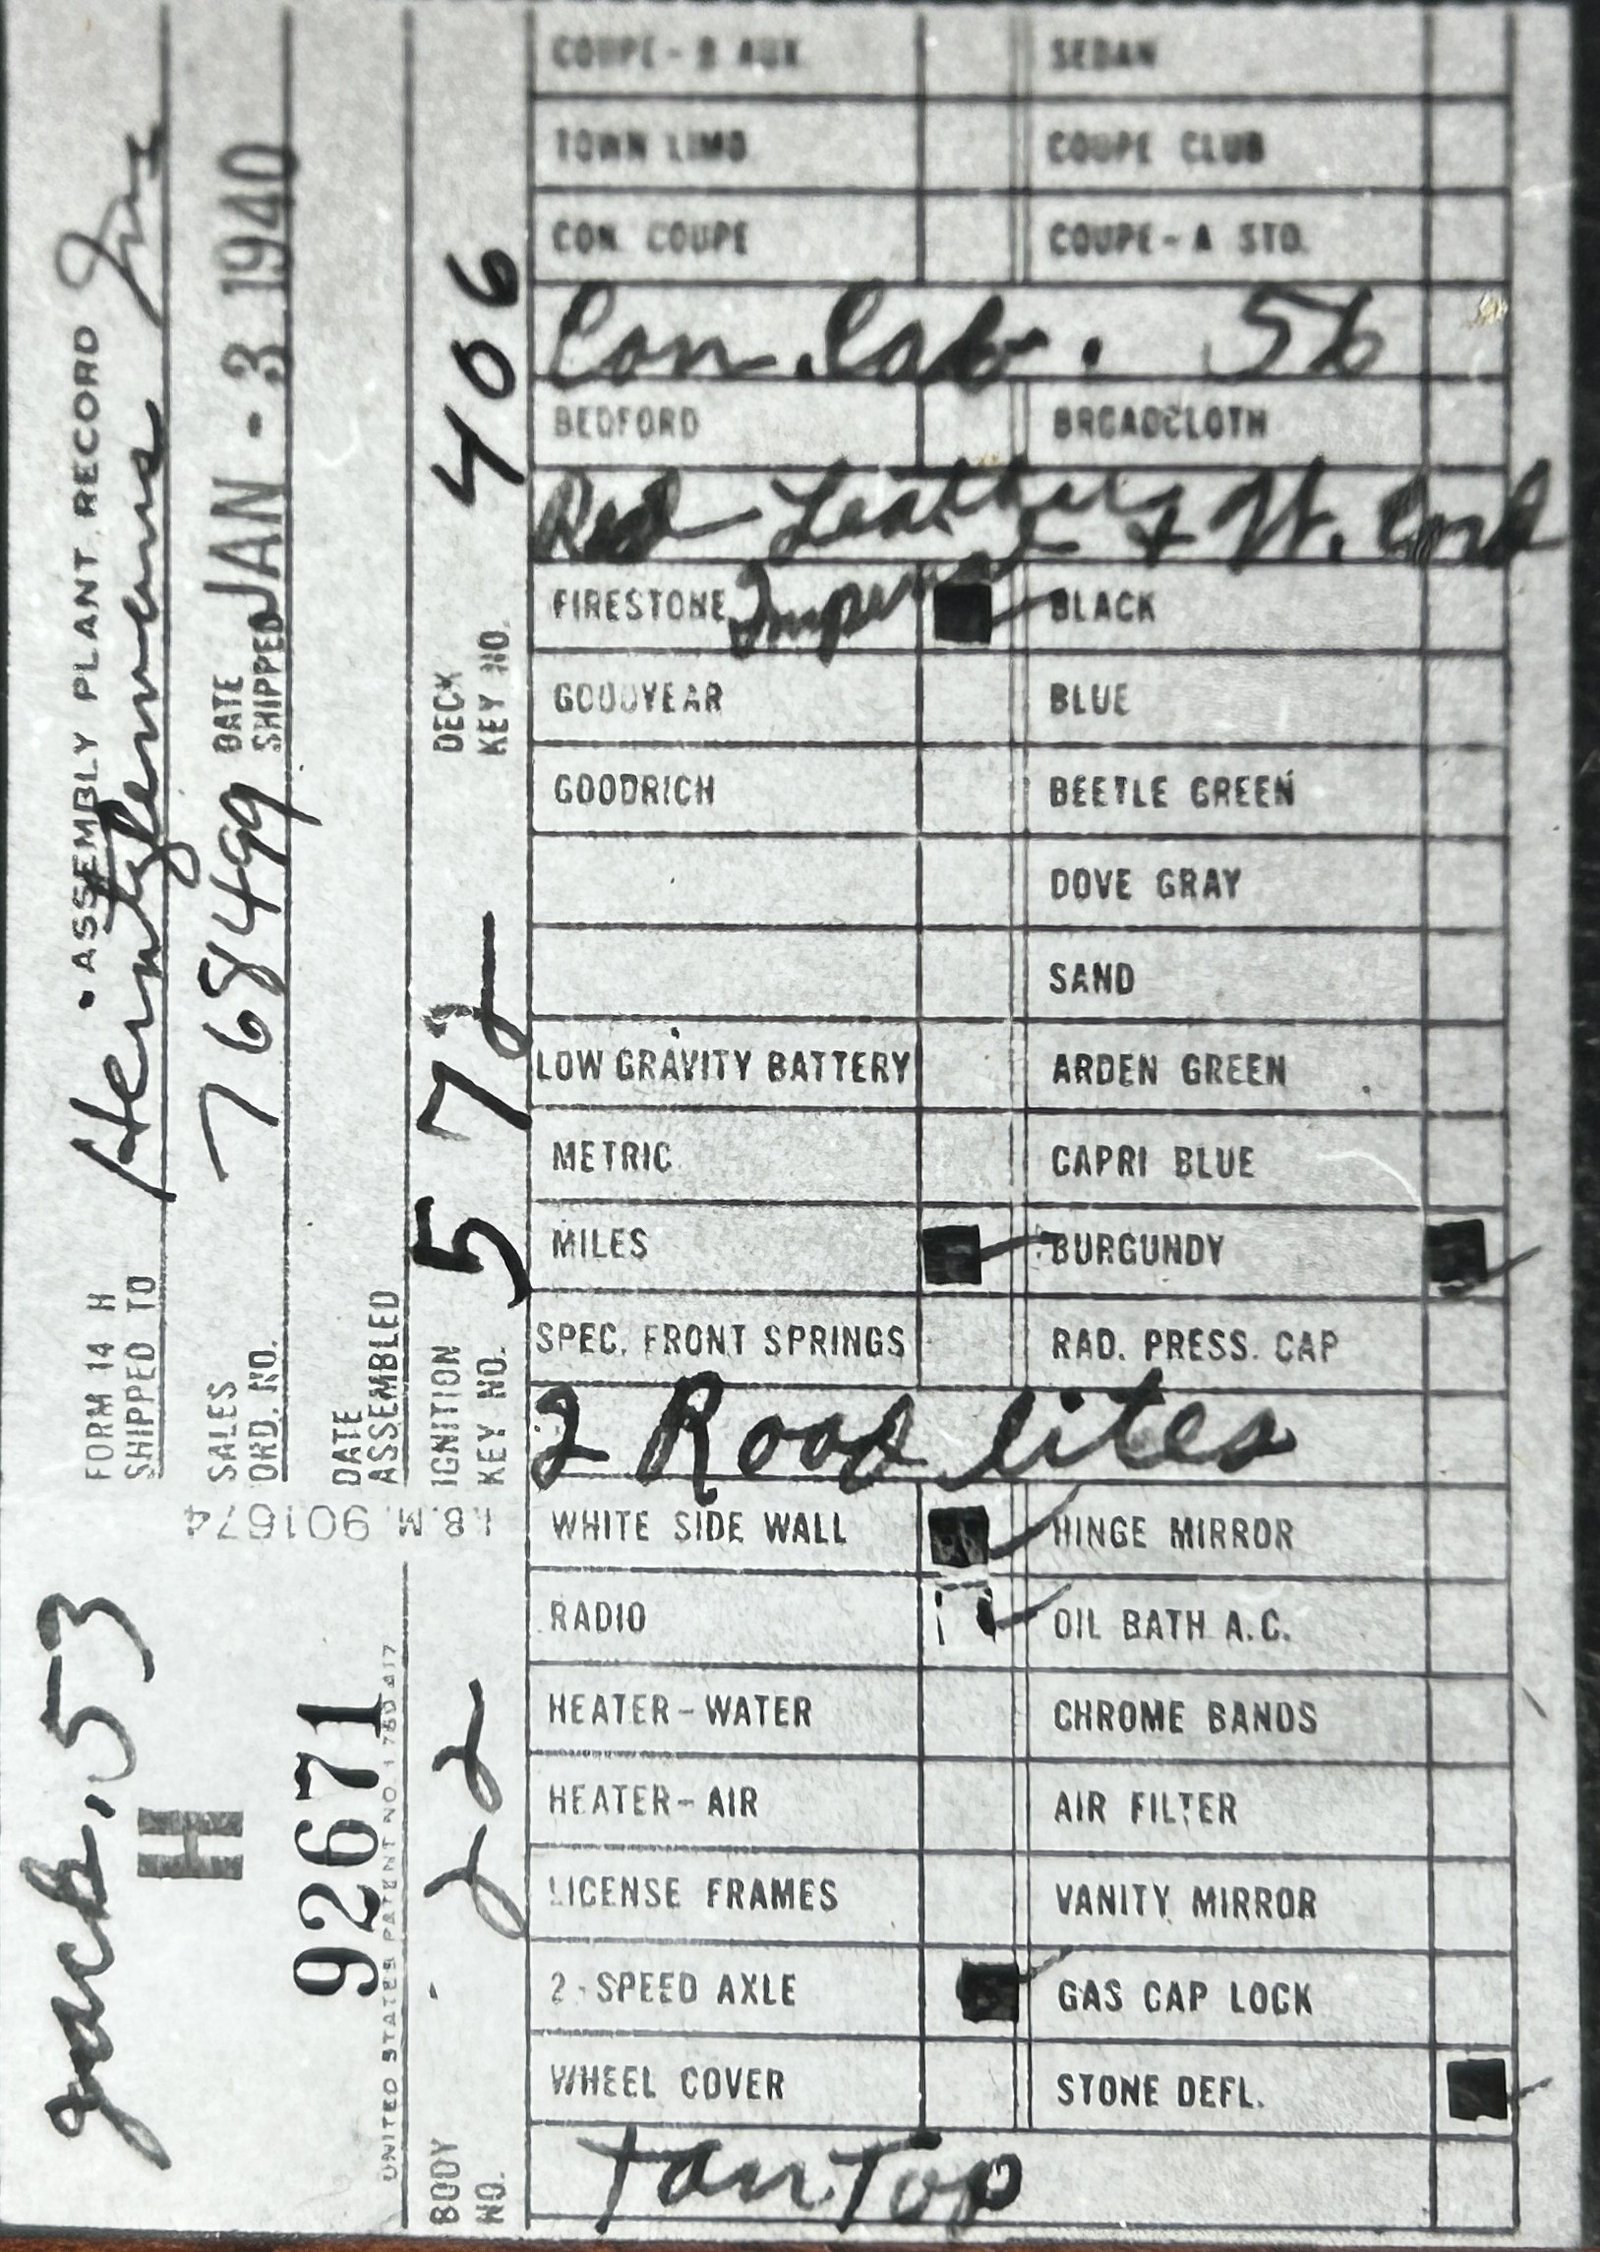 FORM 14 H • ASSEMBLY PLANT RECORD
SHIPPED TO
SALES ORD. NO. 768499 DATE SHIPPED JAN - 3 1940
DATE ASSEMBLED
IGNITION KEY NO. 572 DECK KEY NO. 406
I.B.M. 901674
Jack. 53
H
92671
UNITED STATES PATENT NO. 1780417
BODY NO. 22
COUPE - B AUX. SEDAN
TOWN LIMO COUPE CLUB
CON. COUPE COUPE - A STD.
Con. Cab. 56
BEDFORD BROADCLOTH
Red Leather & W. Cord
FIRESTONE Imper BLACK
GOODYEAR BLUE
GOODRICH BEETLE GREEN
DOVE GRAY
SAND
LOW GRAVITY BATTERY ARDEN GREEN
METRIC CAPRI BLUE
MILES BURGUNDY
SPEC. FRONT SPRINGS RAD. PRESS. CAP
2 Road lites
WHITE SIDE WALL HINGE MIRROR
RADIO OIL BATH A.C.
HEATER - WATER CHROME BANDS
HEATER - AIR AIR FILTER
LICENSE FRAMES VANITY MIRROR
2 - SPEED AXLE GAS CAP LOCK
WHEEL COVER STONE DEFL.
Tan Top